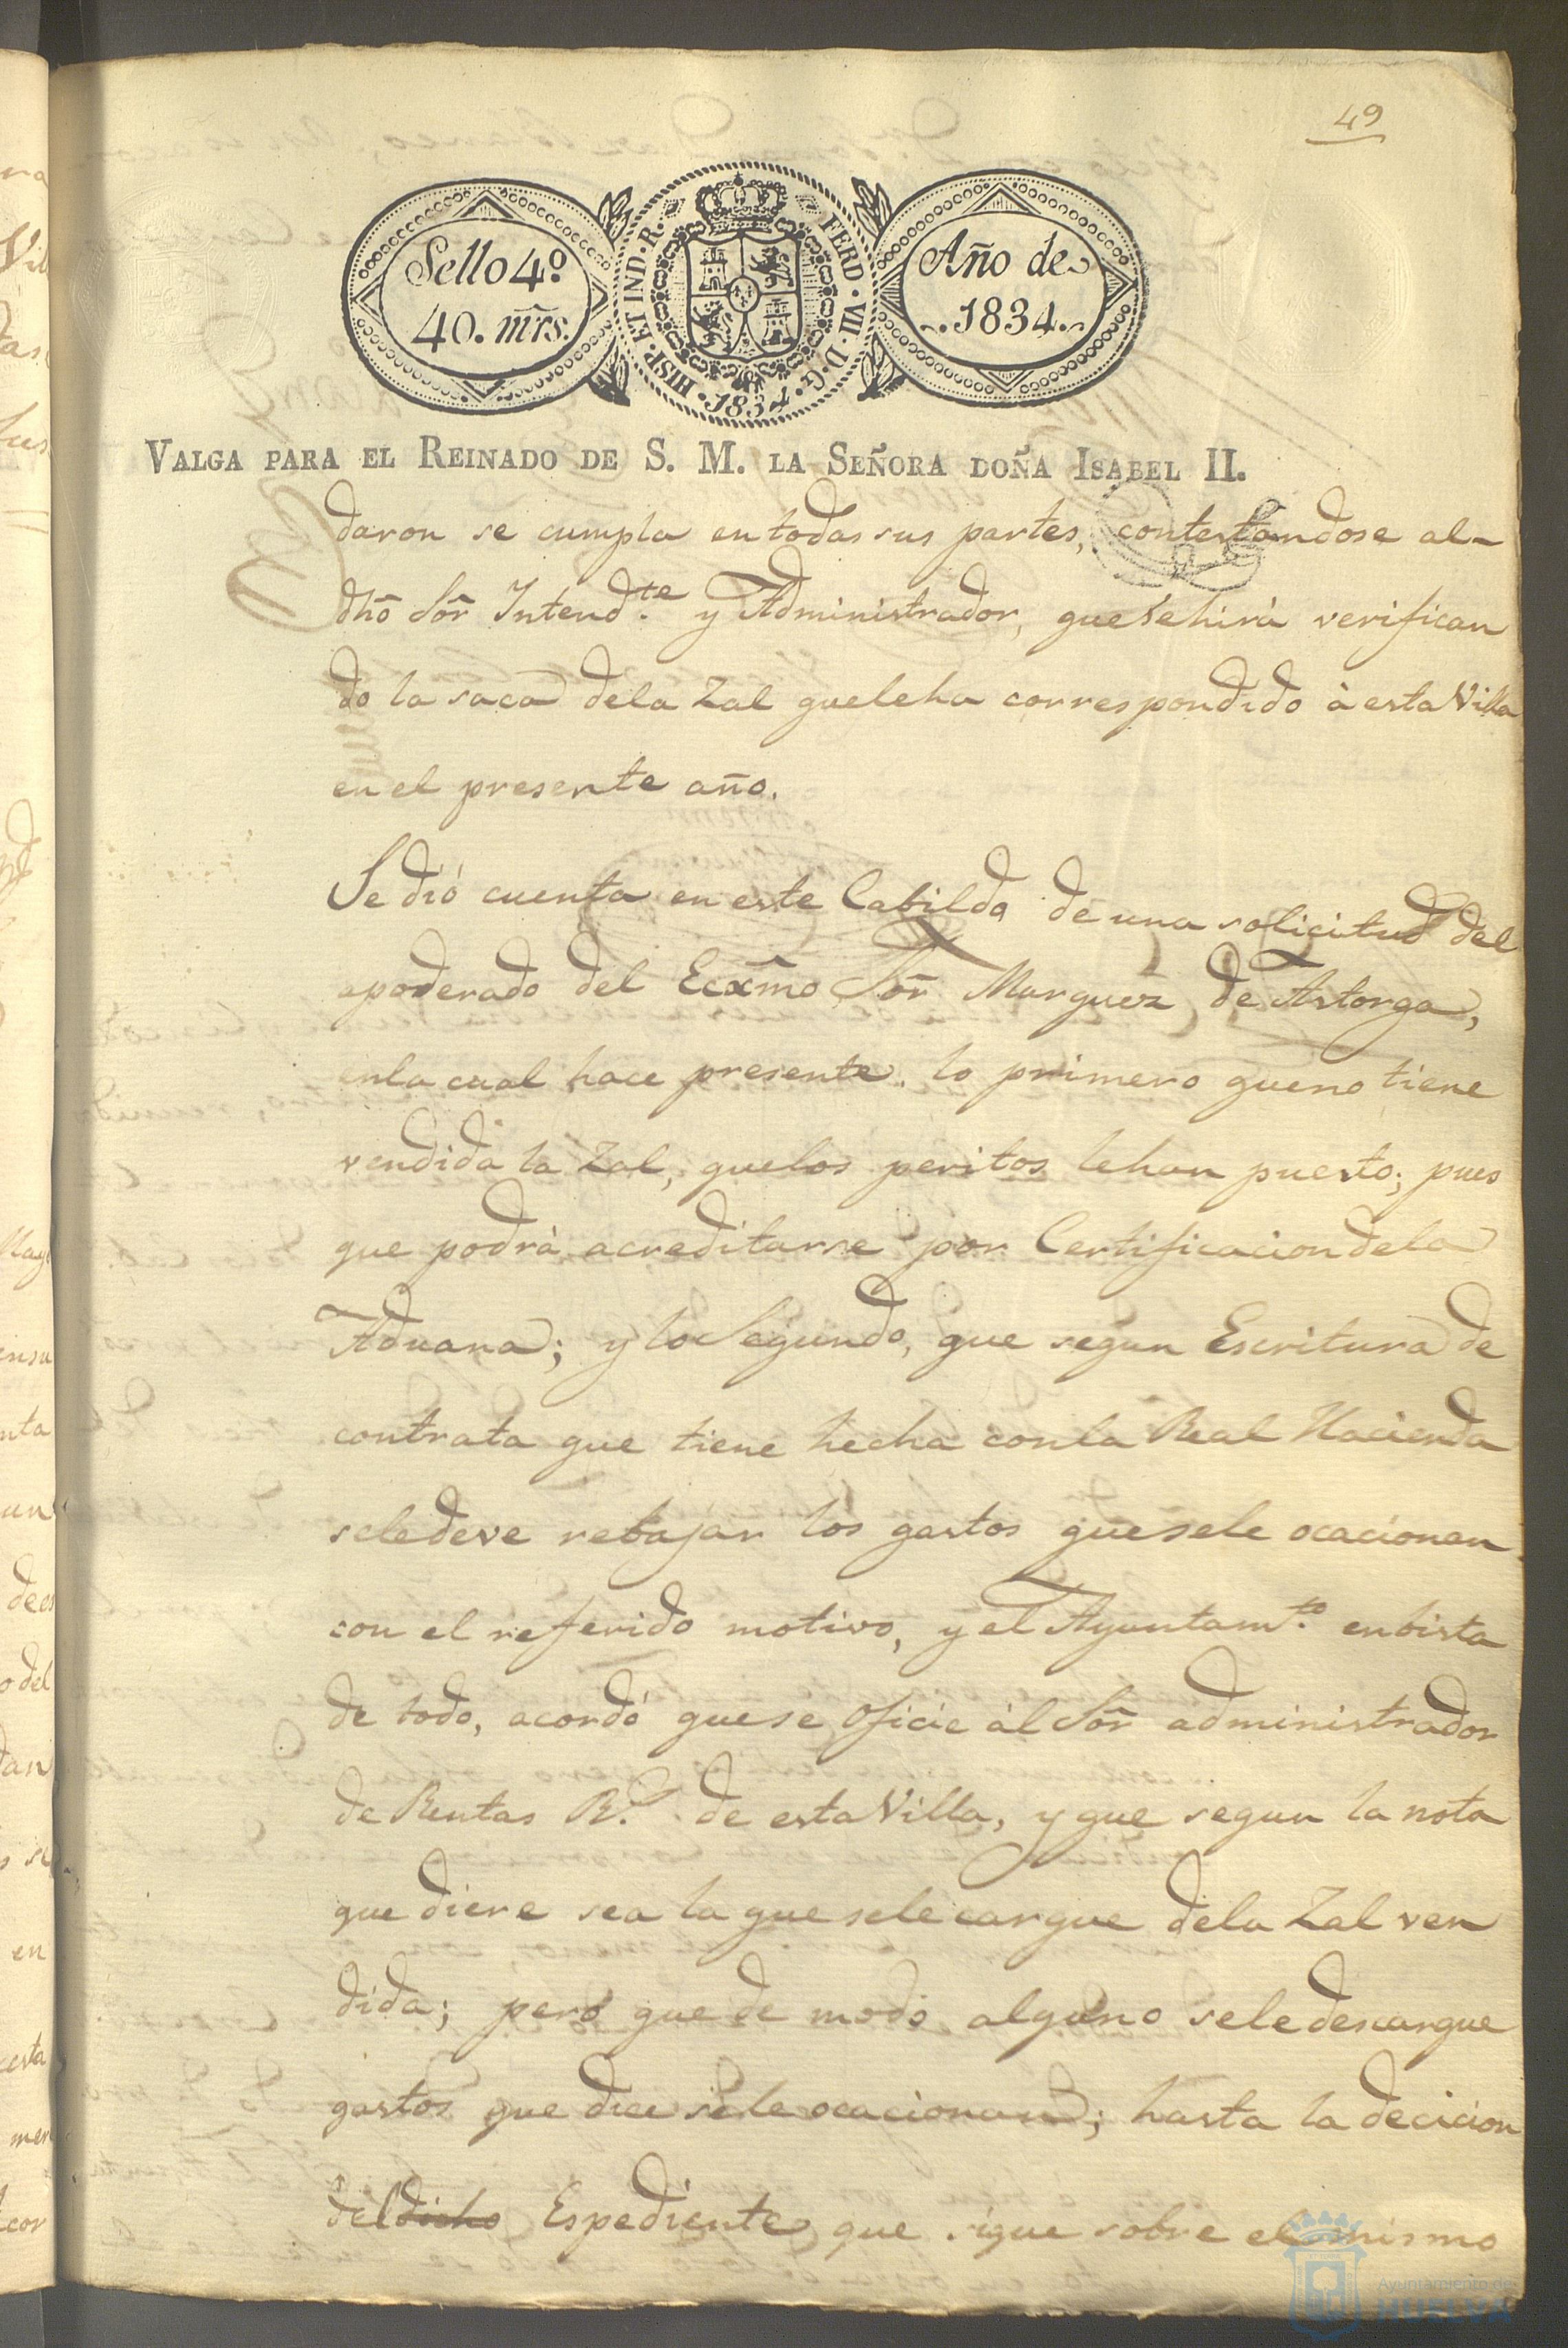 49
Sello 4º
40. mrs.
HISP. ET IND. R.
FERD. VII. D. G.
1834
Año de
1834.
VALGA PARA EL REINADO DE S. M. LA SEÑORA DOÑA ISABEL II.
daron se cumpla en todas sus partes, contestandose al-
dhõ Sõr Intend.te y Administrador, que se hirà verifican
do la saca dela Zal quele ha correspondido à esta Villa
en el presente año.
Se dió cuenta en este Cabildo de una solicitud del
apoderado del Ecxm̃o Sõr Marquez de Astorga,
enla cual hace presente. lo primero queno tiene
vendida la Zal, quelos peritos lehan puesto; pues
que podrà acreditarse por Certificacion dela
Aduana; y lo Segundo, que segun Escritura de
contrata que tiene hecha conla Real Hacienda
seledeve rebajar los gastos quesele ocacionen
con el referido motivo, y el Ayuntam.to enbista
de todo, acordó quese oficie àl Sõr administrador
de Rentas R.s de esta Villa, y que segun la nota
que diere sea la que sele cargue dela Zal ven
dida; pero que de modo alguno sele descargue
gastos que dice sele ocacionan; hasta la decicion
del dicho Espediente que sigue sobre el mismo
Ayuntamiento de
HUELVA